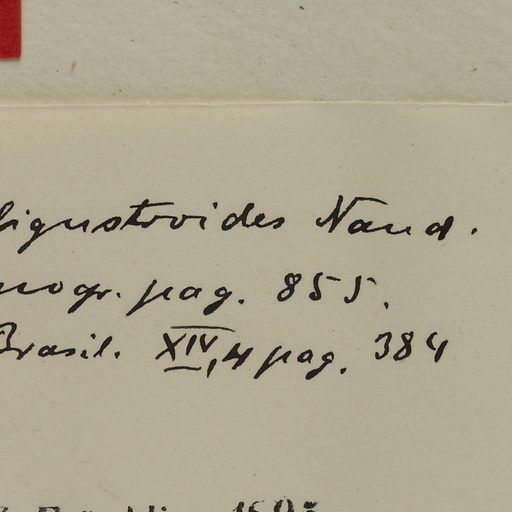 ligustroides Naud.
nogr. pag. 855.
Brasil. XIV, 4 pag. 384